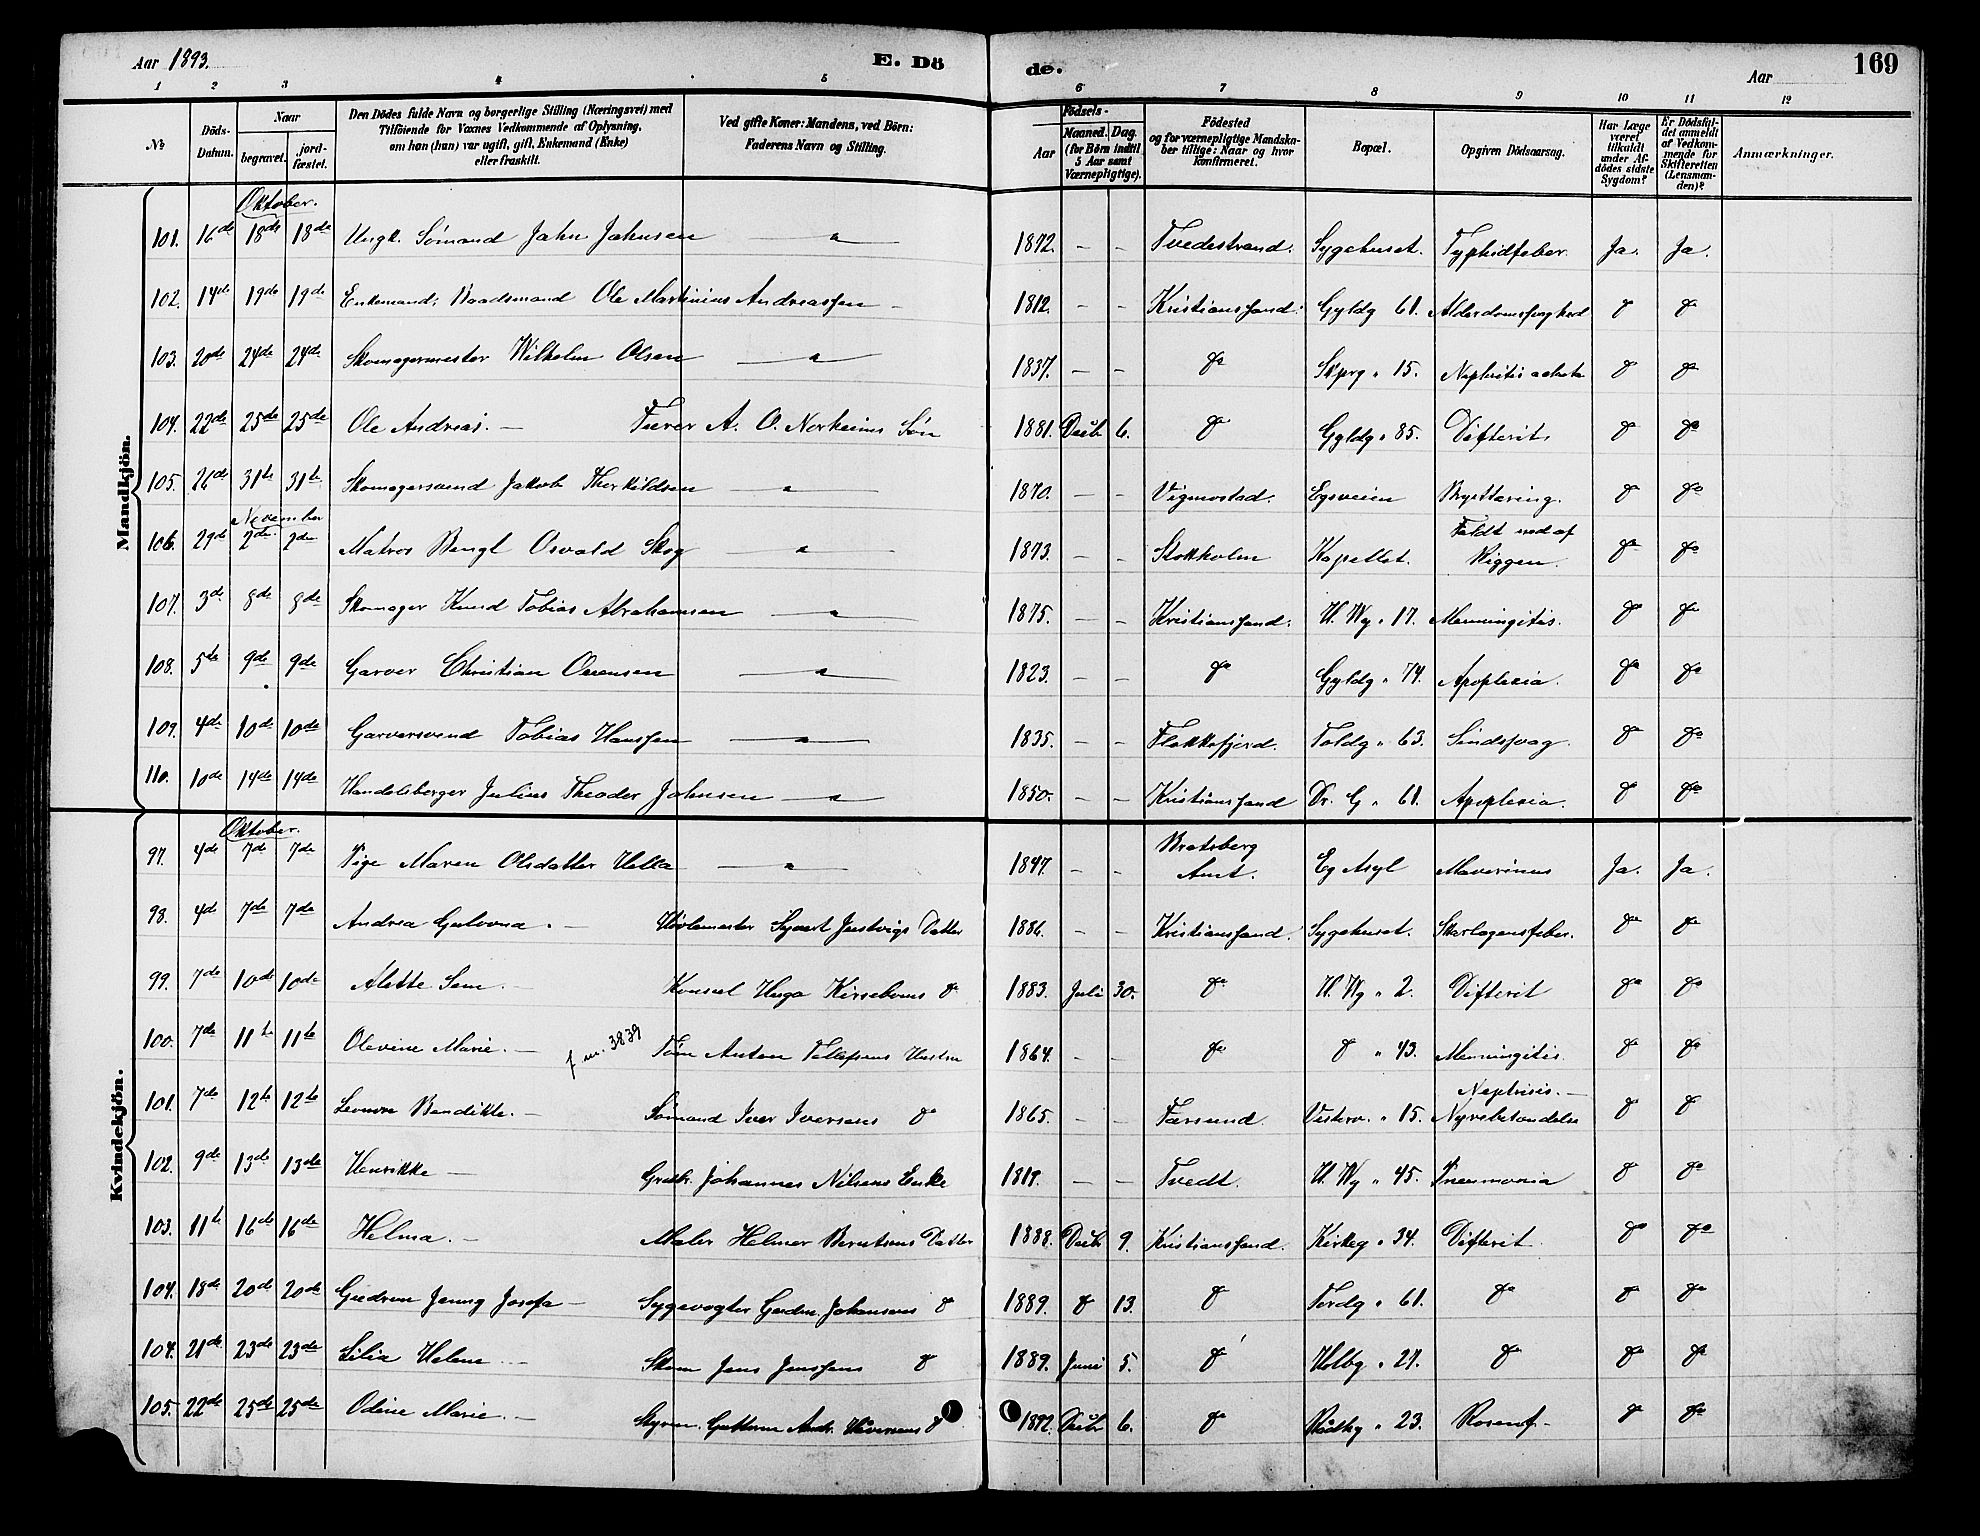 Aar 1893.
E. Dö de.
Aar
169
1 2 3 4 5 6 7 8 9 10 11 12
№
Döds-Datum.
Naar
begravet.
jord-fæstet.
Den Dödes fulde Navn og borgerlige Stilling (Næringsvei) med
Tilföiende for Voxnes Vedkommende af Oplysning,
om han (hun) var ugift, gift, Enkemand (Enke)
eller fraskilt.
Ved gifte Koner: Mandens, ved Börn:
Faderens Navn og Stilling.
Födsels-
Aar
Maaned. Dag.
(for Börn indtil
5 Aar samt
Værnepligtige).
Födested
og for værnepligtige Mandska-
ber tillige: Naar og hvor
konfirmeret.
Bopæl.
Opgiven Dödsaarsag.
Har Læge
været
tilkaldt
under Af-
dödes sidste
Sygdom?
Er Dödsfal-
det anmeldt
af Vedkom-
mende for
Skifteretten
(Lensman-
den)?
Anmærkninger.
Mandkjön.
Oktober.
101. 16de 18de 18de Ungk. Sømand Jahn Jahnsen — " — 1872. — — Tvedestrand. Sygehuset. Typhidfeber. Ja. Ja.
102. 14de 19de 19de Enkemand: Baadsmand Ole Martinius Andreassen — 1812. — — Kristianssand. Gyldg 61. Alderdomssvaghed do do
103. 20de 24de 24de Skomagermester Wilhelm Olsen — " — 1837. — — do " 15. Nephritis do do
104. 22de 25de 25de Ole Andreas. — A. O. Norheims Søn 1881. Decbr 6. do Gyldg " 85. Difterit. do do
105. 26de 31te 31te Skomagersvend Jakob Therkildsen — " — 1870. — — Vigmostad. Egsveien do do
November
106. 29de 2den 2den Matros Bengt Osvald Skog — " — 1873. — — Stokholm Kapellet. Faldt ned af Riggen. do do
107. 3de 8de 8de Skomager Knud Tobias Abrahamsen — " — 1875. — — Kristianssand. " 17. Menningitis. do do
108. 5te 9de 9de Garver Christian Ovensen — " — 1823. — — do Gyldg " 74. Apoplexia. do do
109. 4de 10de 10de Garversvend Tobias Hanssen — " — 1835. — — Flekkefjord. Toldg " 63. Sindssvag. do do
110. 10de 14de 14de Handelsborger Julius Theodor Johnsen — " — 1850. — — Kristianssand Dr. G " 61. Apoplexia. do do
Kvindekjön.
Oktober.
97. 4de 7de 7de Pige Maren Olsdatter Hella — " — 1847. — — Bratsberg Amt. Eg Asyl Ja. Ja.
98. 4de 7de 7de Andrea. — Syvert Justvigs Datter 1886. — — Kristianssand. Sygehuset. Skarlagensfeber. do do
99. 7de 10de 10de Alette Sem. — Konsul Hugo Kirseboms do 1883. Juli 30. do " 2. Difterit do do
100. 7de 11te 11te Olevine Marie. — 3839 Tøm Anton Tellefsens Hustru 1864. — — do do " 43. Menningitis. do do
101. 7de 12te 12te Bendikte. — Sømand Iver Iversens do 1865. — — Farsund. Vesterv. " 15. Nyrebetændelse do do
102. 9de 13de 13de Henrikke — Johannes Nilsens Enke 1819. — — Tvedt. " 45. Pneumonia do do
103. 11te 16de 16de Helma. — Maler Helmer Berntsens Datter 1888. Decbr 9. Kristianssand. Kirkeg " 34. Difterit. do do
104. 18de 20de 20de Gudrun Jenny Josefa — Sygevogter Johansens do 1889. do 13. do Tordg " 61. do do do
104. 21de 23de 23de Lilia Helene — Skom Jens Jenssens do 1889. Juni 5. do Holbg " 27. do do do
105. 22de 25de 25de Odine Marie. — Guttorm Andr. do 1892. Decbr 6. do " 23. Rosenf. do do